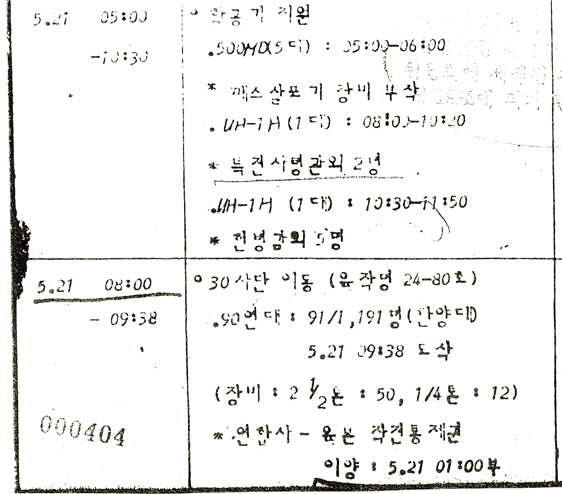 5.21 05:00
-10:30
° 항공기 지원
.500MD(5대) : 05:00-06:00
* 깨스살포기 장비 부착
.UH-1H (1대) : 08:00-10:20
* 특전사령관외 2명
.UH-1H (1대) : 10:30-11:50
* 헌병감외 5명
5.21 08:00
- 09:38
° 30사단 이동 (육작명 24-80호)
.90연대 : 91/1,191명(안양대)
5.21 09:38 도착
(장비 : 2 1/2톤 : 50, 1/4톤 : 12)
* 연합사 - 육본 작전통제권
이양 : 5.21 01:00부
000404